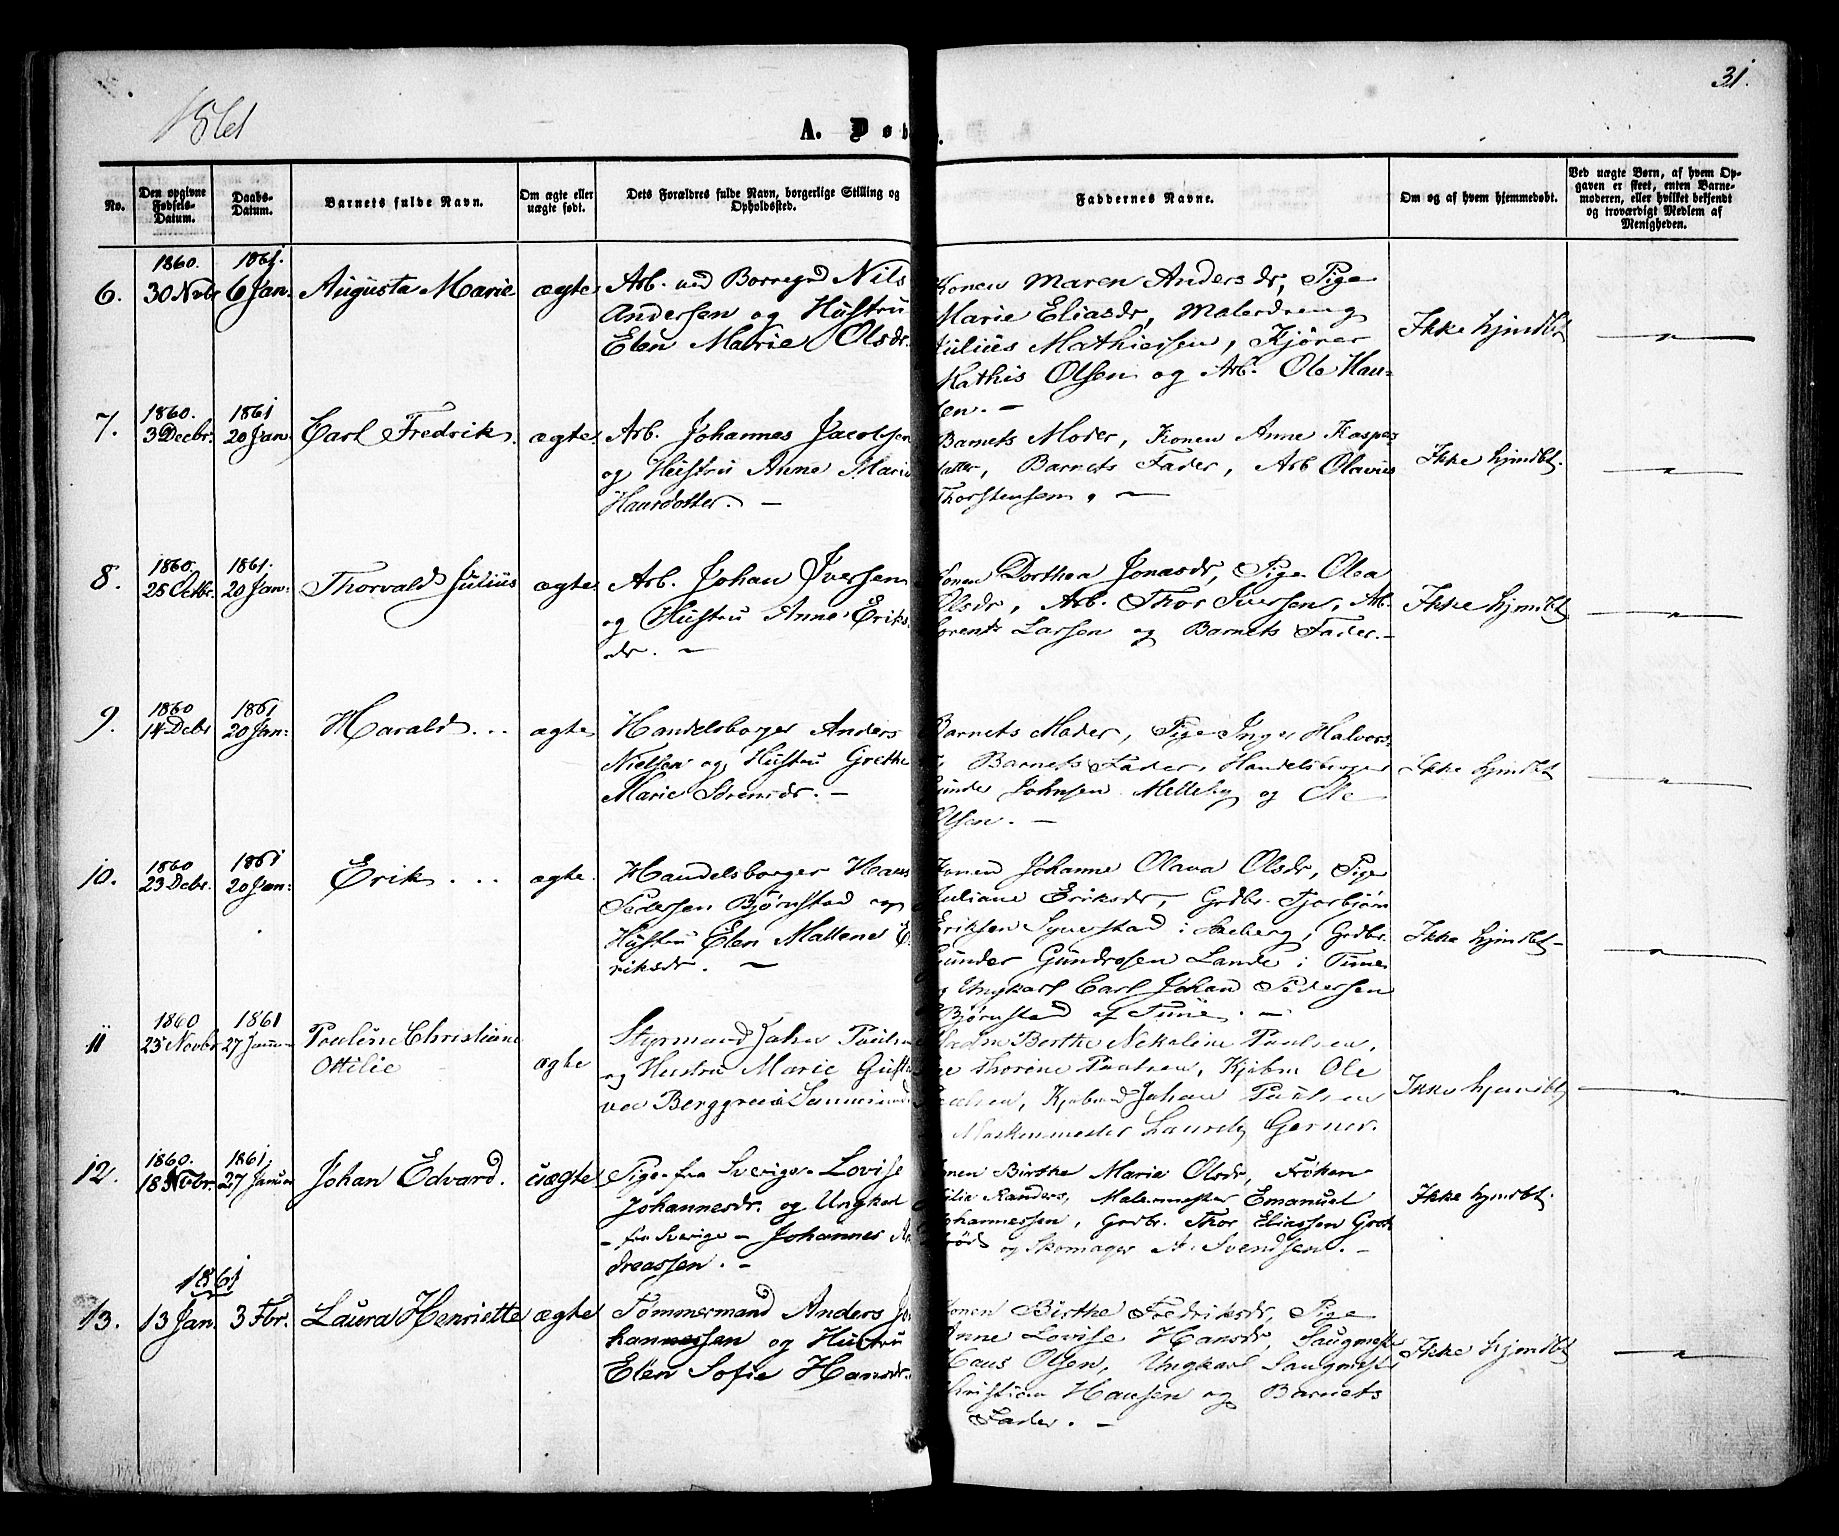 1861
31.
A. Døb
No.
Den opgivne Fødsels-Datum.
Daabs-Datum.
Barnets fulde Navn.
Om ægte eller uægte født.
Dets Forældres fulde Navn, borgerlige Stilling og Opholdssted.
Faddernes Navne.
Om og af hvem hjemmedøbt.
Ved uægte Børn, af hvem Opgaven er skeet, enten Barnemoderen, eller hvilket bekjendt og troværdigt Medlem af Menigheden.
6.
1860.
30 Nvbr
1861.
6 Jan:
Augusta Marie
ægte
Arb. ved Borregrd Nils
Andersen og Hustru
Elen Marie Olsdr.
Konen Maren Andersdr, Pige
Marie Eliasdr, Malerdreng
Julius Mathiessen, Kjører
Mathis Olsen og Arb. Ole Han-
sen. –
Ikke hjmdbt
– " –
7.
1860.
3 Decbr.
1861
20 Jan.
Carl Fredrik.
ægte.
Arb. Johannes Jacobsen
og Hustru Anne Marie
Hansdotter. –
Barnets Moder, Konen Anne Kaspers
datter, Barnets Fader, Arb Olavus
Thorstensen. –
Ikke hjmdbt.
– " –
8.
1860.
25 Octbr.
1861.
20 Jan:
Thorvald Julius
ægte.
Arb. Johan Iversen
og Hustru Anne Eriks
dr. –
Konen Dorthea Jonasdr, Pige Olea
Olsdr, Arb. Thor Iversen, Arb.
Lorents Larsen og Barnets Fader. –
Ikke hjmdbt
– " –
9.
1860
14 Debr
1861
20 Jan:
Harald . . .
ægte
Handelsborger Anders
Nielsen og Hustru Grethe
Marie Sørensdr. –
Barnets Moder, Pige Inger Halvors-
Barnets Fader, Handelsborger
Gunder Johnsen Melleby og Ole
Olsen. –
Ikke hjmdbt
– " –
10.
1860
23 Debr.
1861
20 Jan:
Erik . . .
ægte.
Handelsborger Hans
Pedersen Bjørnstad og
Hustru Elen Mallene E
riksdr. –
Konen Johanne Olava Olsdr, Pige
Juliane Eriksdr, Grdbr. Torbjørn
Eriksen Syverstad i Skeberg, Grdbr.
Gunder Gundrosen Lande i Tune
og Ungkarl Carl Johan Pedersen
Bjørnstad af Tune. –
Ikke hjmdbt –
– " –
11
1860
25 Novbr
1861
27 Januar
Pauline Christiane
Ottilie
ægte
Styrmand Johan Paulsen
og Hustru Marie Gusta
va Berggren
Berthe Nikoline Paulsen,
Thorine Paulsen, Kjøbm Ole
Paulsen, Kjøbmd Johan Paulsen
Maskinmester Laurely Gerner.
Ikke hjemdbt
– " –
12.
1860.
18 Nvbr.
1861.
27 Januar
Johan Edvard.
uægte
Pige – fra Sverige – Lovise
Johannesdr. og Ungkarl
– fra Sverige – Johannes An
dreassen. –
Konen Birthe Marie Olsdr, Frøken
Julie Randers, Malermester Emanuel
Johannessen, Grdbr. Thor Eliassen Grot
røds og Skomager A. Svendsen. –
Ikke hjmdbt.
1861
13.
13 Jan.
3 Fbr.
Laura Henriette
ægte
Tømmermand Anders Jo
hannessen og Hustru
Elen Sofie Hansdr.
Konen Birthe Fredriksdr, Pige
Anne Lovise Hansdr, Saugmest
Hans Olsen, Ungkarl Saugmest
Christian Hansen og Barnets
Fader. –
Ikke hjmdbt
– " –